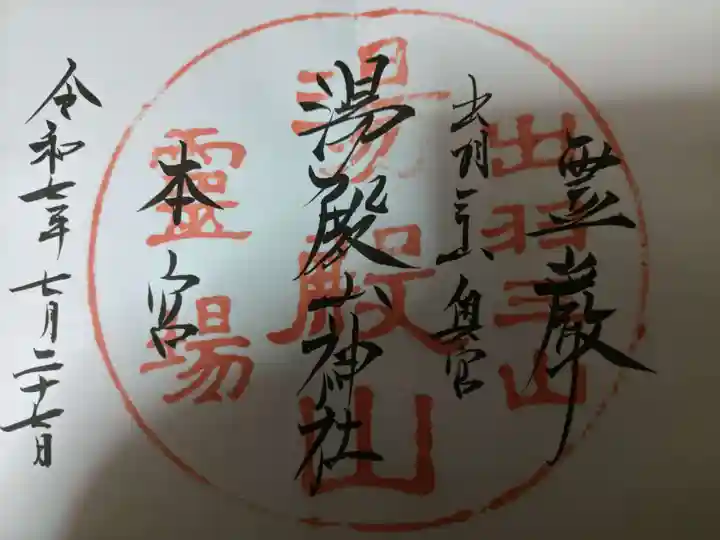 霊巌
出羽三山奥宮
湯殿山神社
本宮
令和七年七月二十七日
出羽三山
湯殿山
靈場